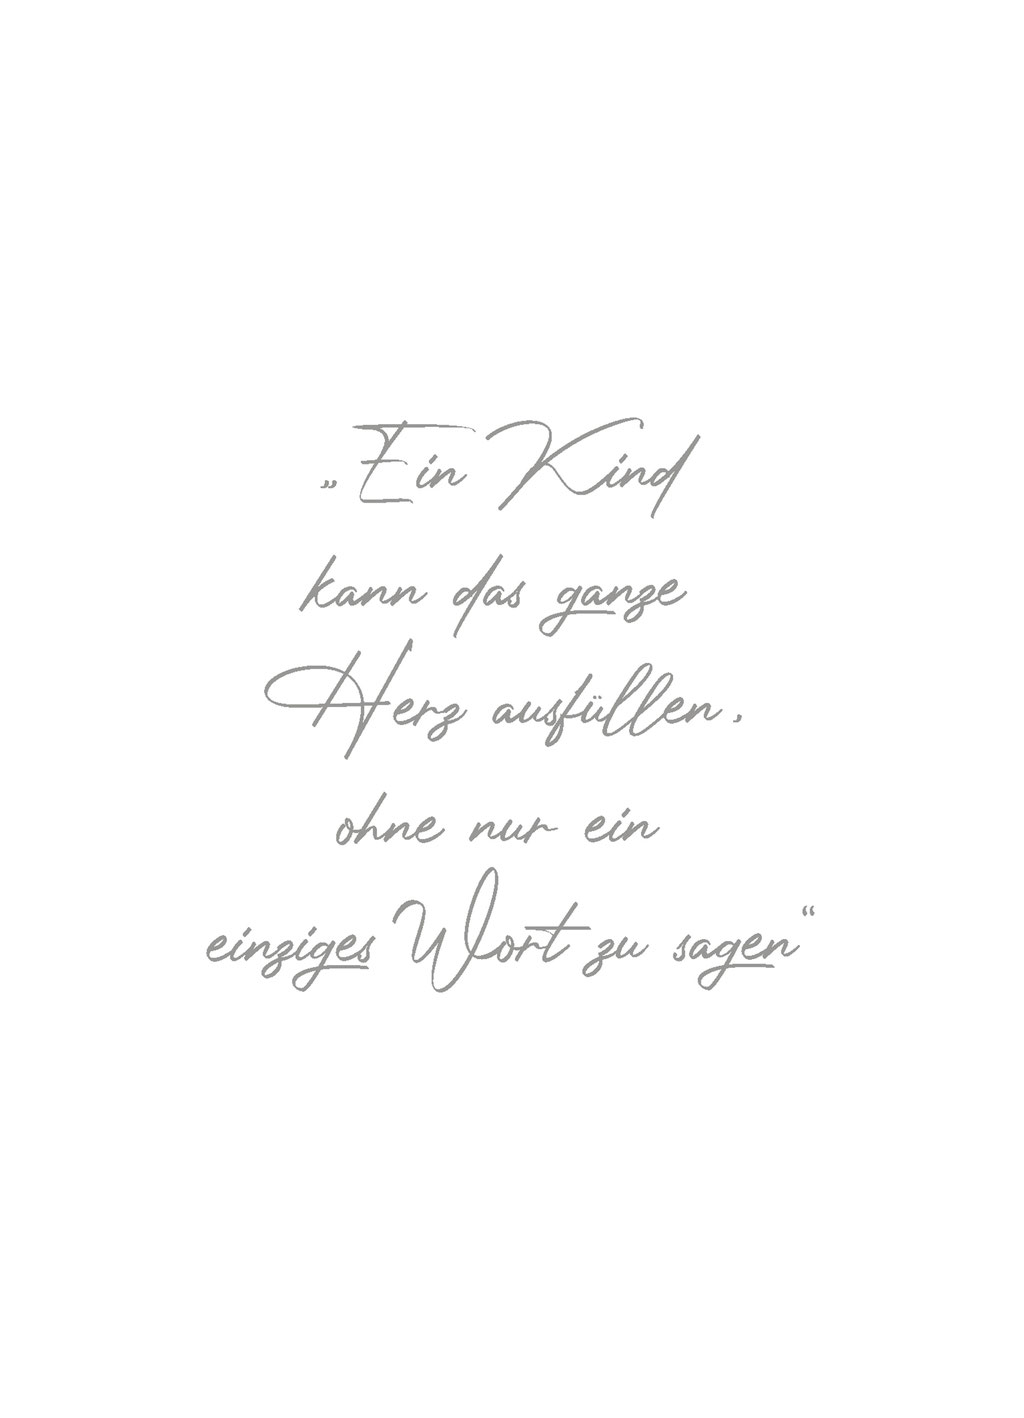 „Ein Kind
kann das ganze
Herz ausfüllen,
ohne nur ein
einziges Wort zu sagen“